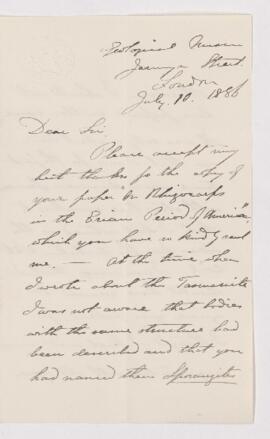 Geological Museum
Jermyn Street.
London
July 10. 1886
Dear Sir.
Please accept my
best thanks for the copy of
your paper "On Rhizocarps
in the Erian Period of America"
which you have so kindly sent
me. — At the time when
I wrote about the Tasmanite
I was not aware that bodies
with the same structure had
been described and that you
had named them Sporangites